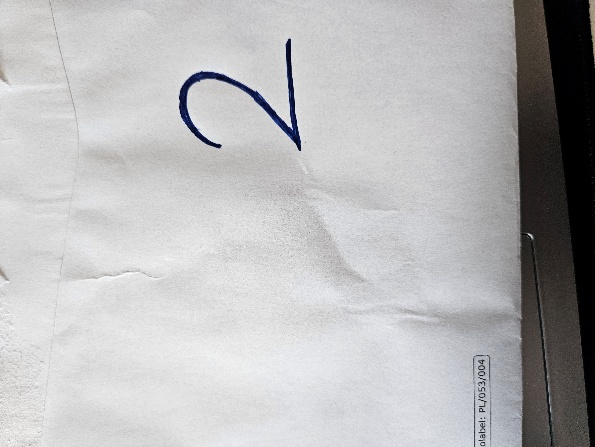 2
olabel: PL/053/004